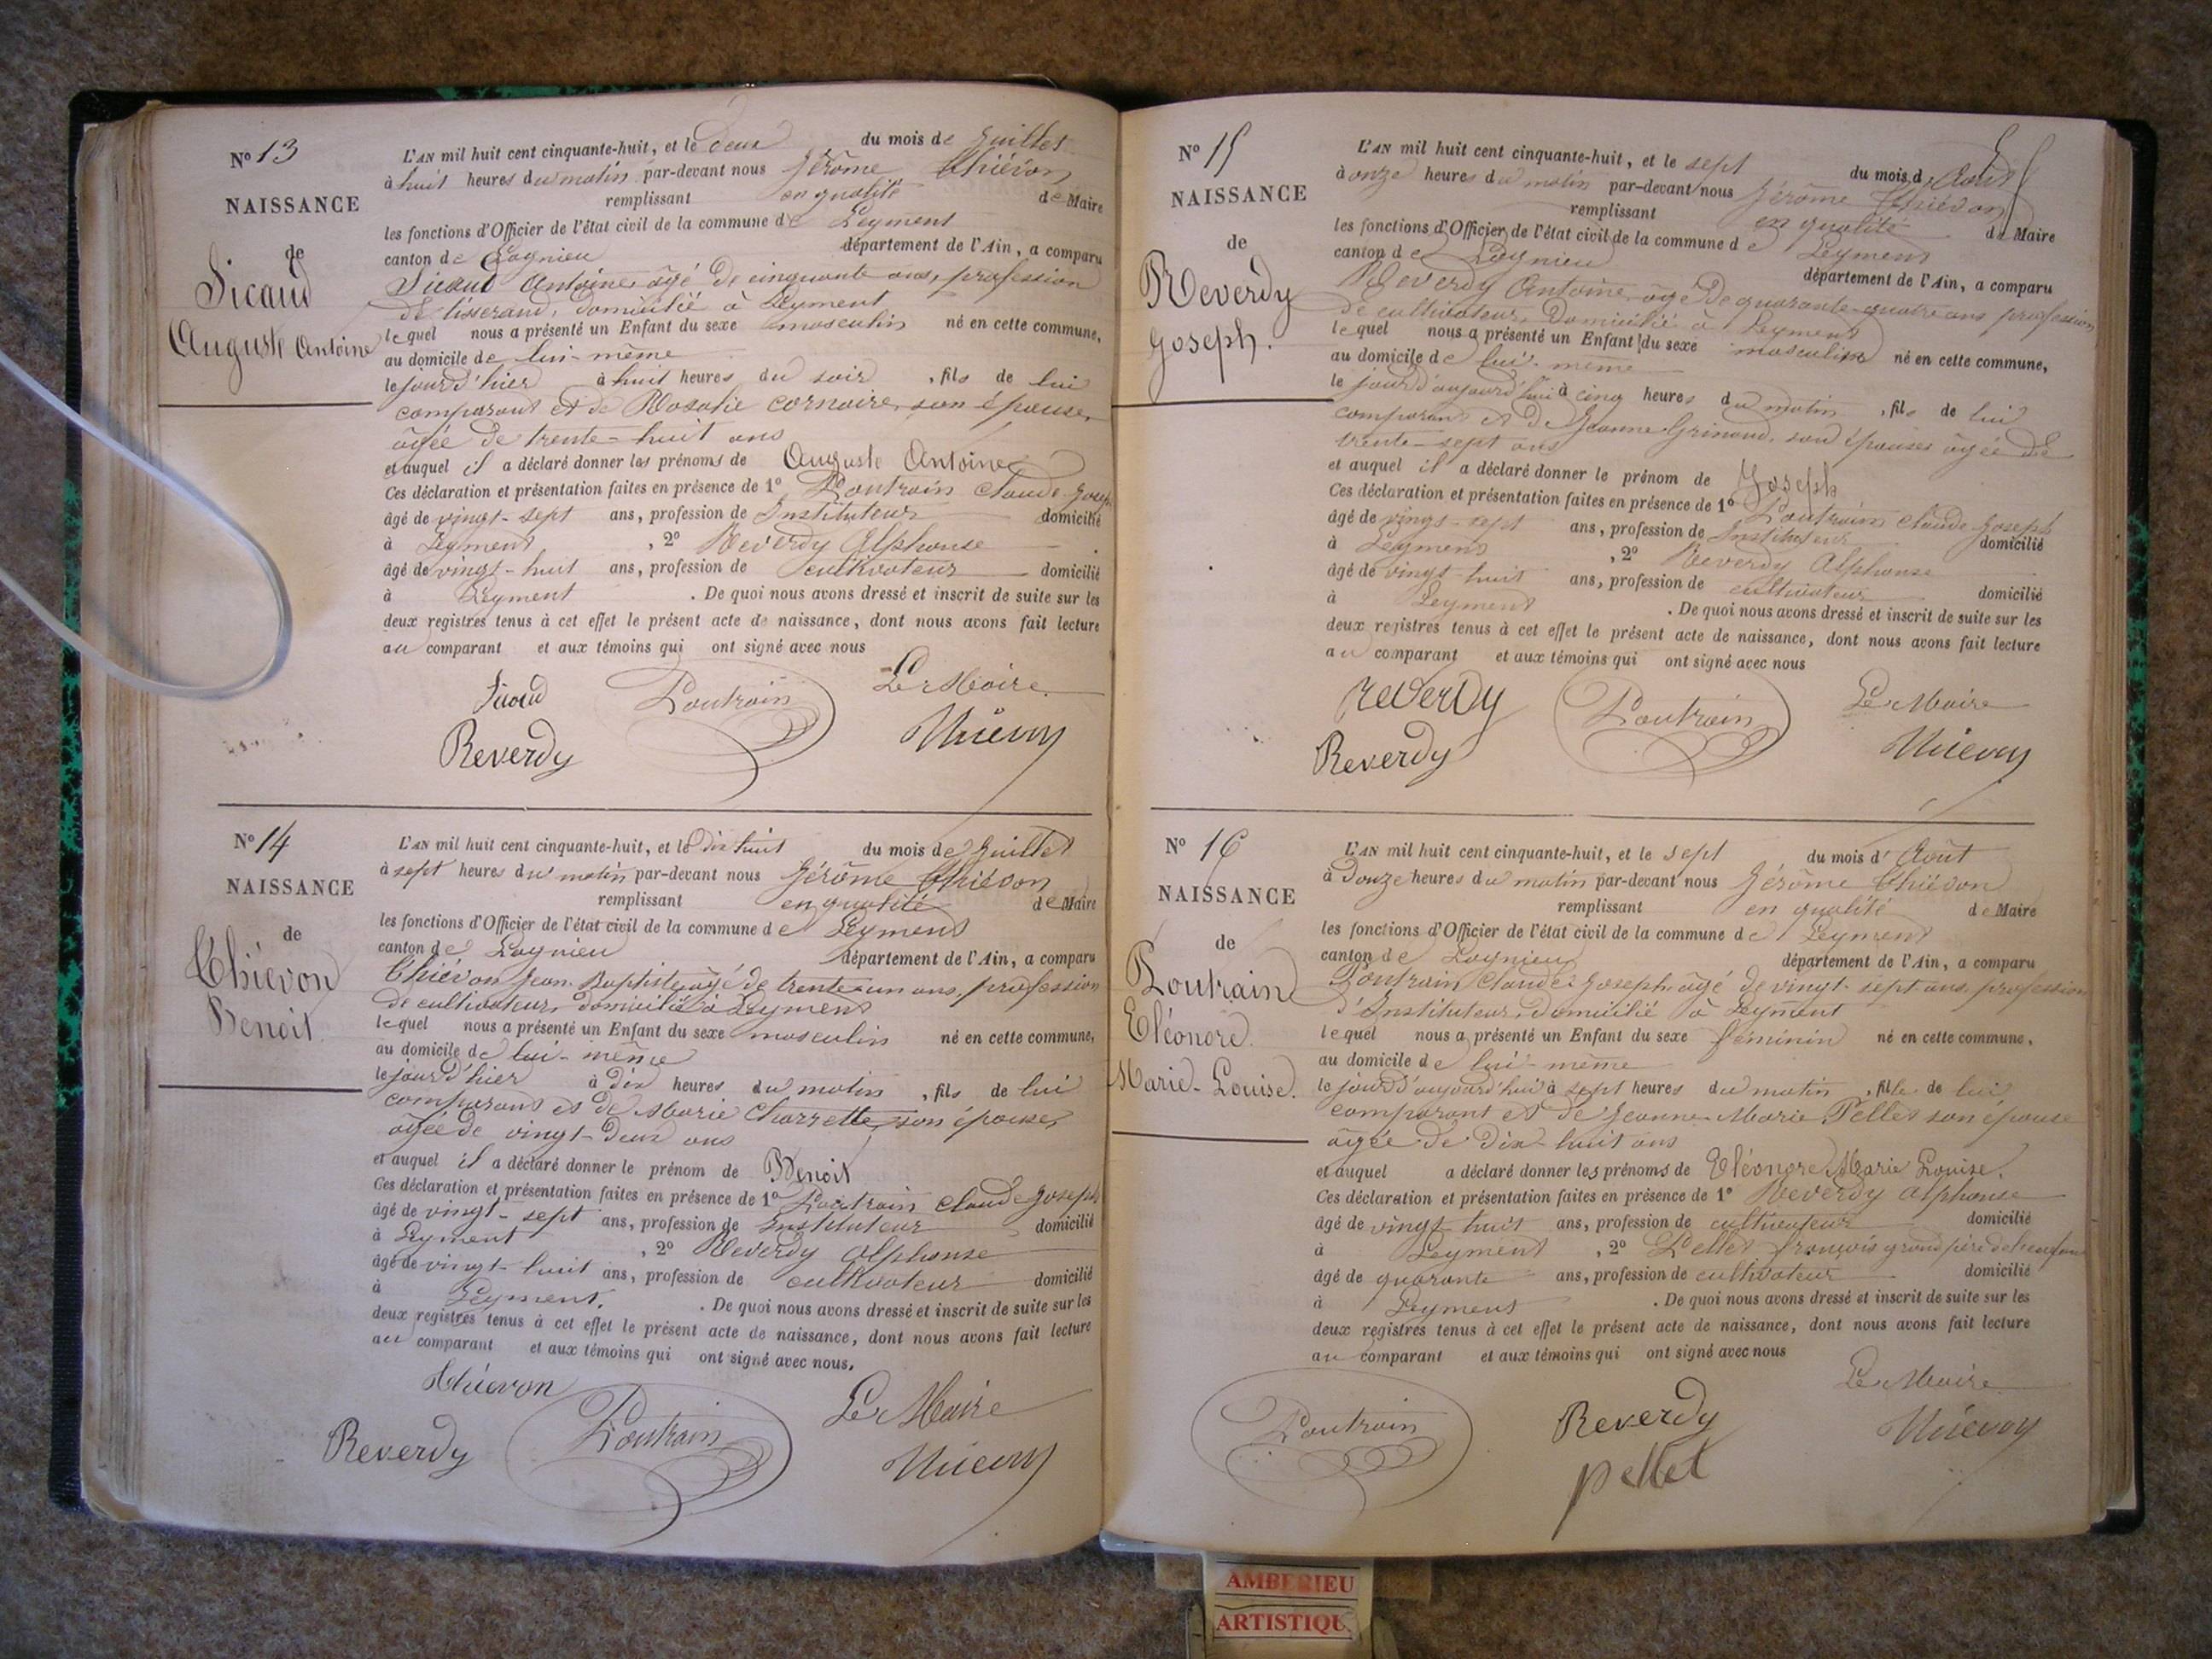 Nº 13
NAISSANCE
de
Sicaud
Auguste Antoine
L'AN mil huit cent cinquante-huit, et le deux du mois de Juillet
à huit heures du matin par-devant nous Jérôme Thiévon
remplissant en qualité de Maire
les fonctions d'Officier de l'état civil de la commune de Leyment
canton de Lagnieu département de l'Ain, a comparu
Sicaud Antoine, âgé de cinquante ans, profession
de tisserand, domicilié à Leyment
lequel nous a présenté un Enfant du sexe masculin né en cette commune,
au domicile de lui-même
le jour d'hier à huit heures du soir, fils de lui
comparant et de Rosalie Cornaire, son épouse,
âgée de trente-huit ans
et auquel il a déclaré donner les prénoms de Auguste Antoine
Ces déclaration et présentation faites en présence de 1º Poutrain Claude Joseph
âgé de vingt-sept ans, profession de Instituteur domicilié
à Leyment, 2º Reverdy Alphonse
âgé de vingt-huit ans, profession de cultivateur domicilié
à Leyment. De quoi nous avons dressé et inscrit de suite sur les
deux registres tenus à cet effet le présent acte de naissance, dont nous avons fait lecture
au comparant et aux témoins qui ont signé avec nous
Sicaud Poutrain Le Maire
Reverdy Thiévon
Nº 14
NAISSANCE
de
Thiévon
Benoit.
L'AN mil huit cent cinquante-huit, et le dix huit du mois de Juillet
à sept heures du matin par-devant nous Jérôme Thiévon
remplissant en qualité de Maire
les fonctions d'Officier de l'état civil de la commune de Leyment
canton de Lagnieu département de l'Ain, a comparu
Thiévon Jean Baptiste, âgé de trente-un ans, profession
de cultivateur, domicilié à Leyment
lequel nous a présenté un Enfant du sexe masculin né en cette commune,
au domicile de lui-même
le jour d'hier à dix heures du matin, fils de lui
comparant et de Marie Charrette, son épouse,
âgée de vingt-deux ans
et auquel il a déclaré donner le prénom de Benoit
Ces déclaration et présentation faites en présence de 1º Poutrain Claude Joseph
âgé de vingt-sept ans, profession de Instituteur domicilié
à Leyment, 2º Reverdy Alphonse
âgé de vingt-huit ans, profession de cultivateur domicilié
à Leyment. De quoi nous avons dressé et inscrit de suite sur les
deux registres tenus à cet effet le présent acte de naissance, dont nous avons fait lecture
au comparant et aux témoins qui ont signé avec nous.
Thiévon Poutrain Le Maire
Reverdy Thiévon
Nº 15
NAISSANCE
de
Reverdy
Joseph.
L'AN mil huit cent cinquante-huit, et le sept du mois d'Août
à onze heures du matin par-devant nous Jérôme Thiévon
remplissant en qualité de Maire
les fonctions d'Officier de l'état civil de la commune de Leyment
canton de Lagnieu département de l'Ain, a comparu
Reverdy Antoine, âgé de quarante-quatre ans profession
de cultivateur, domicilié à Leyment
lequel nous a présenté un Enfant du sexe masculin né en cette commune,
au domicile de lui-même
le jour d'aujourd'hui à cinq heures du matin, fils de lui
comparant et de Jeanne Grinand, son épouse, âgée de
trente-sept ans
et auquel il a déclaré donner le prénom de Joseph
Ces déclaration et présentation faites en présence de 1º Poutrain Claude Joseph
âgé de vingt-sept ans, profession de Instituteur domicilié
à Leyment, 2º Reverdy Alphonse
âgé de vingt-huit ans, profession de cultivateur domicilié
à Leyment. De quoi nous avons dressé et inscrit de suite sur les
deux registres tenus à cet effet le présent acte de naissance, dont nous avons fait lecture
au comparant et aux témoins qui ont signé avec nous
Reverdy Poutrain Le Maire
Reverdy Thiévon
Nº 16
NAISSANCE
de
Poutrain
Eléonore
Marie-Louise.
L'AN mil huit cent cinquante-huit, et le sept du mois d'Août
à douze heures du matin par-devant nous Jérôme Thiévon
remplissant en qualité de Maire
les fonctions d'Officier de l'état civil de la commune de Leyment
canton de Lagnieu département de l'Ain, a comparu
Poutrain Claude Joseph, âgé de vingt-sept ans, profession
d'Instituteur, domicilié à Leyment
lequel nous a présenté un Enfant du sexe féminin né en cette commune,
au domicile de lui-même
le jour d'aujourd'hui à sept heures du matin, fille de lui
comparant et de Jeanne-Marie Pellet son épouse
âgée de dix-huit ans
et auquel a déclaré donner les prénoms de Eléonore Marie Louise.
Ces déclaration et présentation faites en présence de 1º Reverdy Alphonse
âgé de vingt huit ans, profession de cultivateur domicilié
à Leyment, 2º Pellet François grand père de l'enfant
âgé de quarante ans, profession de cultivateur domicilié
à Leyment. De quoi nous avons dressé et inscrit de suite sur les
deux registres tenus à cet effet le présent acte de naissance, dont nous avons fait lecture
au comparant et aux témoins qui ont signé avec nous
Le Maire
Poutrain Reverdy Thiévon
pellet
AMBERIEU
ARTISTIQUE